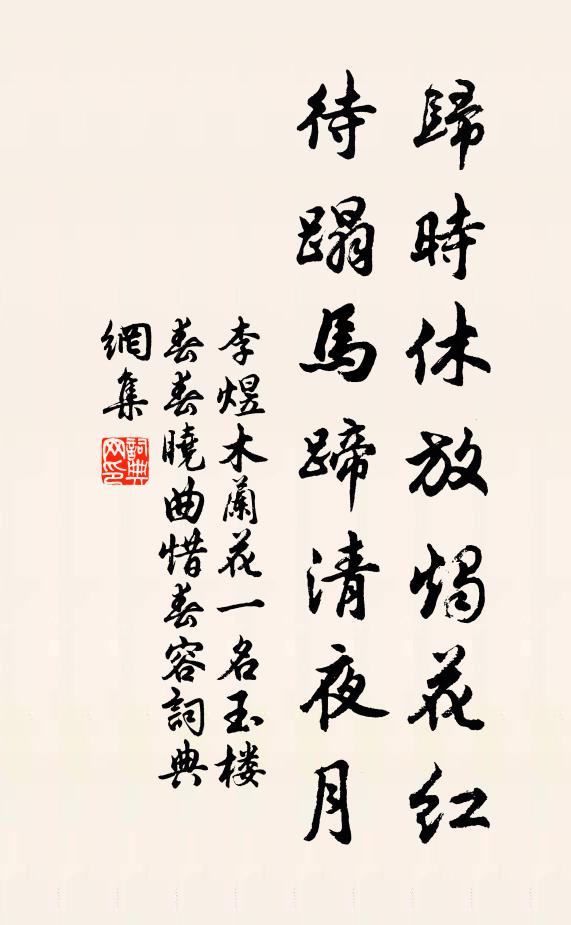 歸時休放燭花紅
待蹋馬蹄清夜月
李煜木蘭花一名玉楼
春春曉曲惜春容詞典
網集
詞典網印